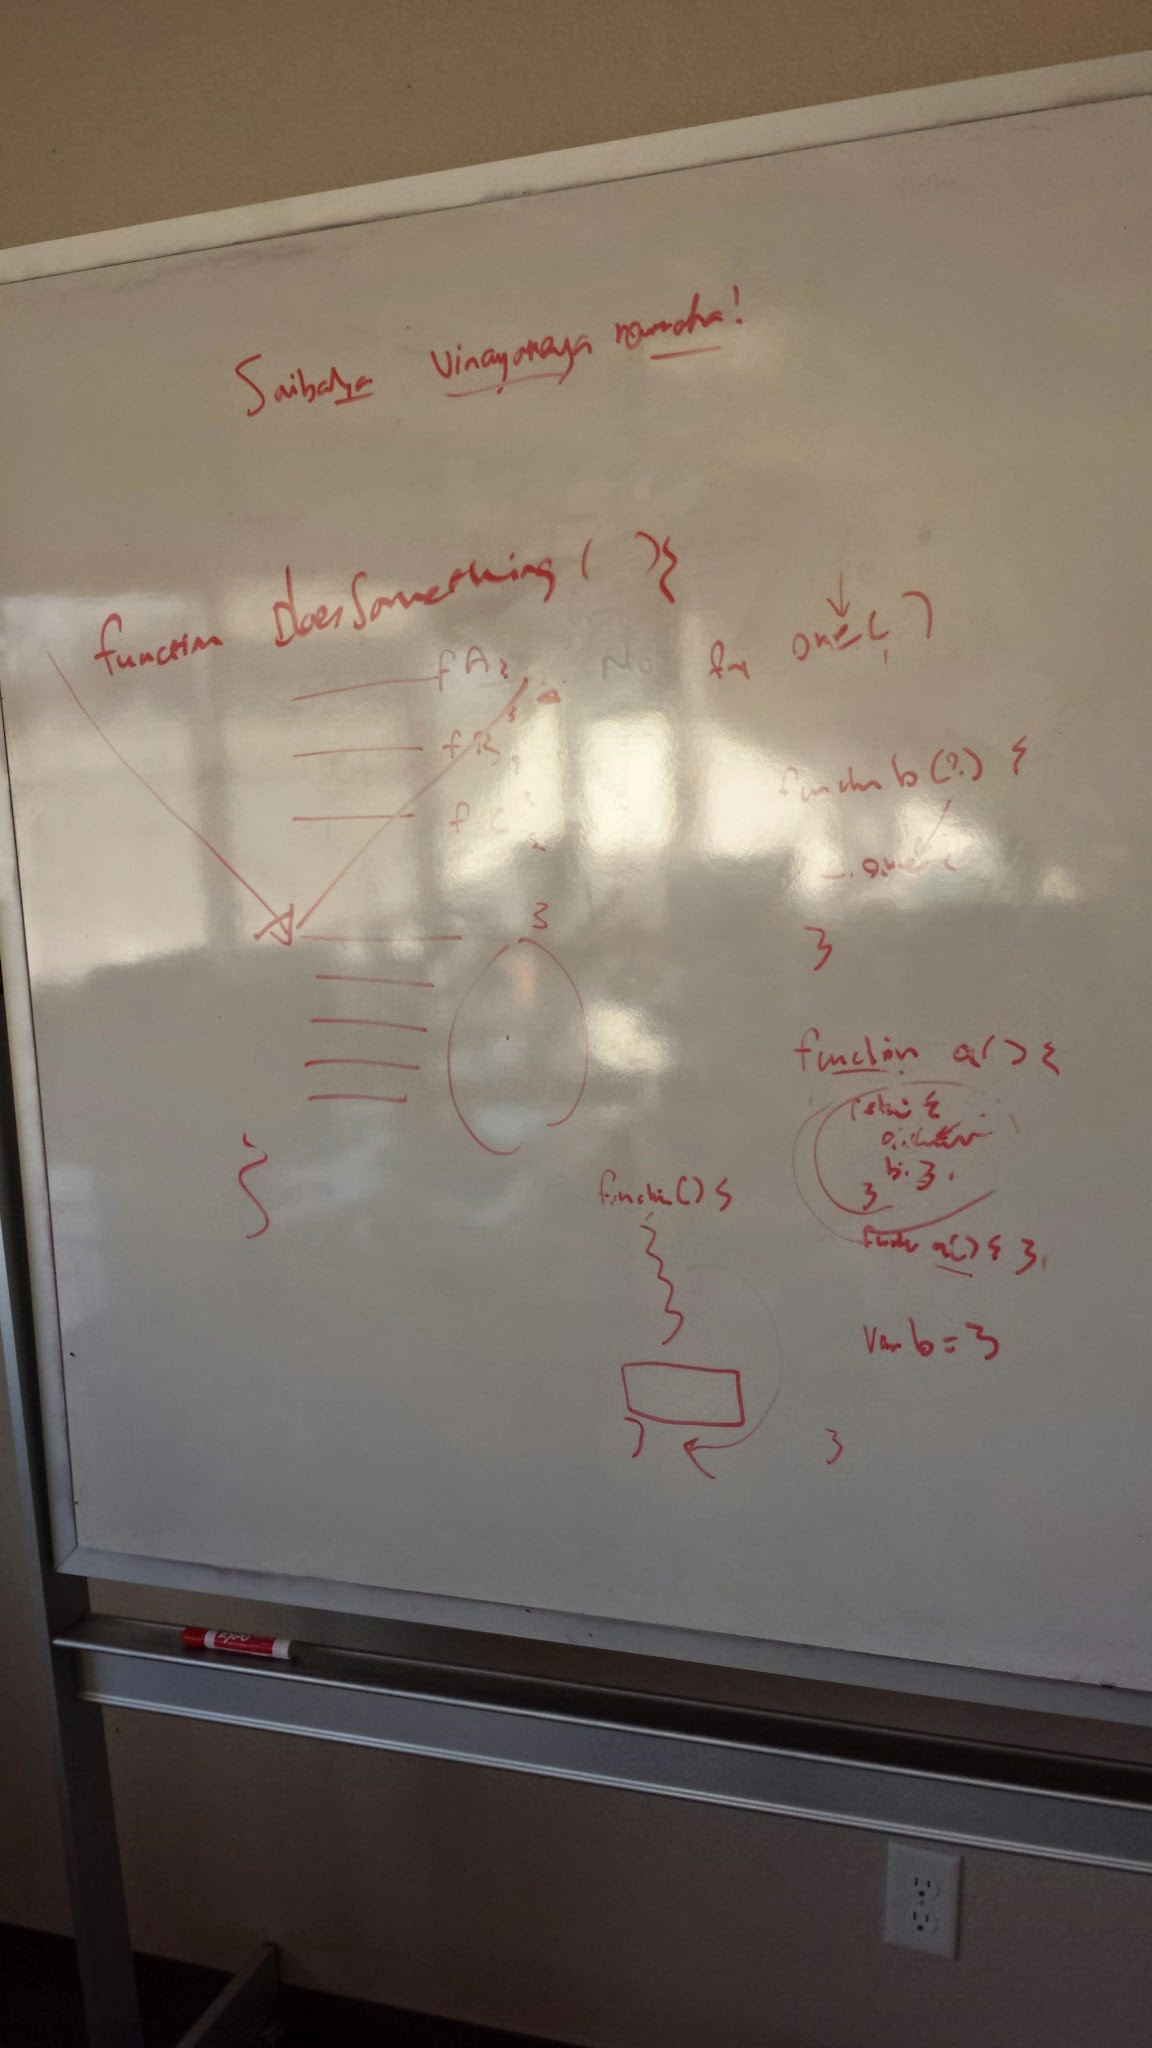 Saibaba Vinayakaya namaha!
function DoesSomething( ){
fA
fB
fC
}
fn one( )
function b(?) {
}
function a() {
return {
b: 3.
}
function a() { }
var b = 3
}
function() {
}
Expo